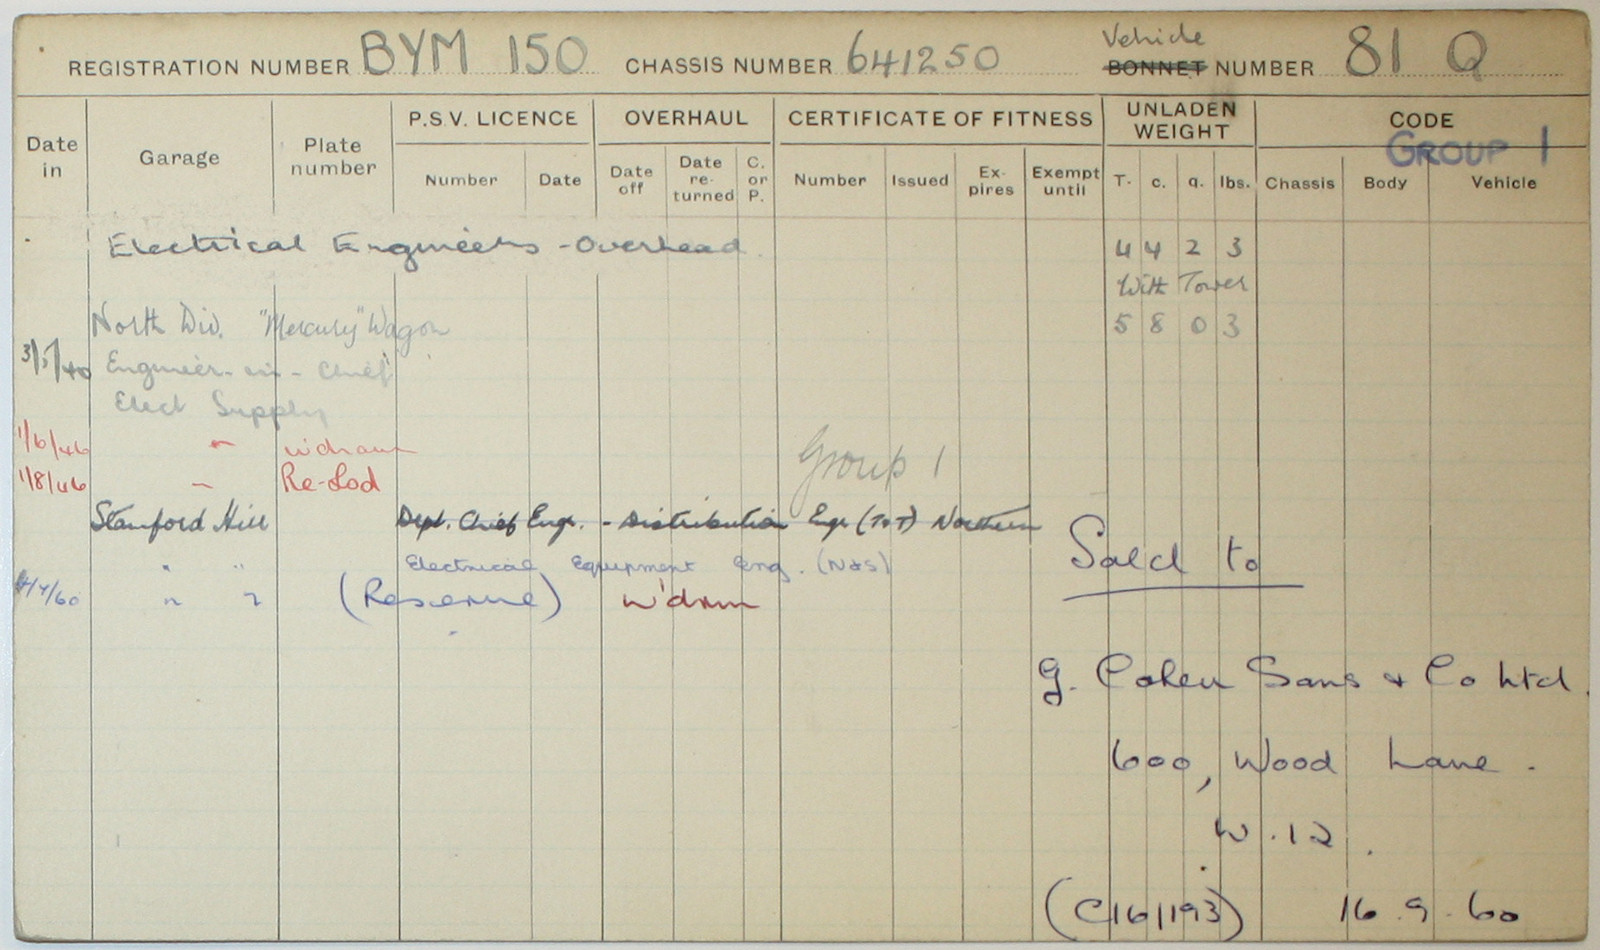 REGISTRATION NUMBER BYM 150 CHASSIS NUMBER 641250 Vehicle BONNET NUMBER 81 Q
Date in Garage Plate number P.S.V. LICENCE OVERHAUL CERTIFICATE OF FITNESS UNLADEN WEIGHT CODE
GROUP 1
Number Date Date off Date re-turned C. or P. Number Issued Ex-pires Exempt until T. c. q. lbs. Chassis Body Vehicle
Electrical Engineers - Overhead. 4 4 2 3
With Tower
North Div. "Mercury" Wagon 5 8 0 3
3/5/40 Engineer-in-Chief
Elect Supply
1/6/46 " w'drawn
Group 1
1/8/46 " Re-Lod
Stamford Hill Dept. Chief Engr. - Distribution Engr (T&T) Northern
Sold to
" " Electrical Equipment Eng. (N&S)
/4/60 " " (Reserve) w'drwn
G. Cohen Sons & Co Ltd.
600, Wood Lane.
W.12.
(C161193) 16.9.60